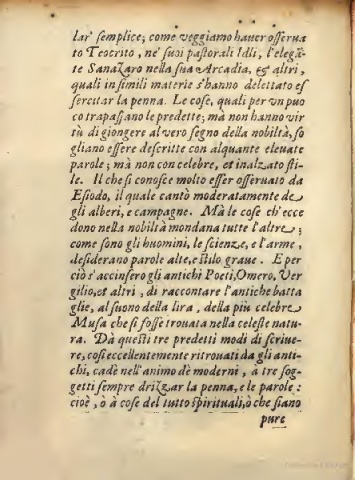 lar' semplice; come veggiamo hauer osserua
to Teocrito, ne' suoi pastorali Idli, l'elegā
te SanaZaro nella sua Arcadia, & altri,
quali in simili materie s'hanno delettato es
sercitar la penna. Le cose, quali per vn puo
co trapassano le predette; mà non hanno vir
tù di giongere al vero segno della nobiltà, so
gliano essere descritte con alquante eleuate
parole; mà non con celebre, et inalzato sti-
le. Il che si conosce molto esser osseruato da
Esiodo, il quale cantò moderatamente de
gli alberi, e campagne. Mà le cose ch'ecce
dono nella nobiltà mondana tutte l'altre;
come sono gli huomini, le scienze, e l'arme,
desiderano parole alte, e stilo graue. E per
ciò s'accinsero gli antichi Poeti, Omero, Ver
gilio, et altri, di raccontare l'antiche batta
glie, al suono della lira, della più celebre
Musa che si fosse trouata nella celeste natu
ra. Dà questi tre predetti modi di scriue-
re, così eccellentemente ritrouati da gli anti-
chi, cadè nell'animo dè moderni, a tre sog-
getti sempre driZZar la penna, e le parole:
cioè, ò à cose del tutto spirituali, ò che siano
pure